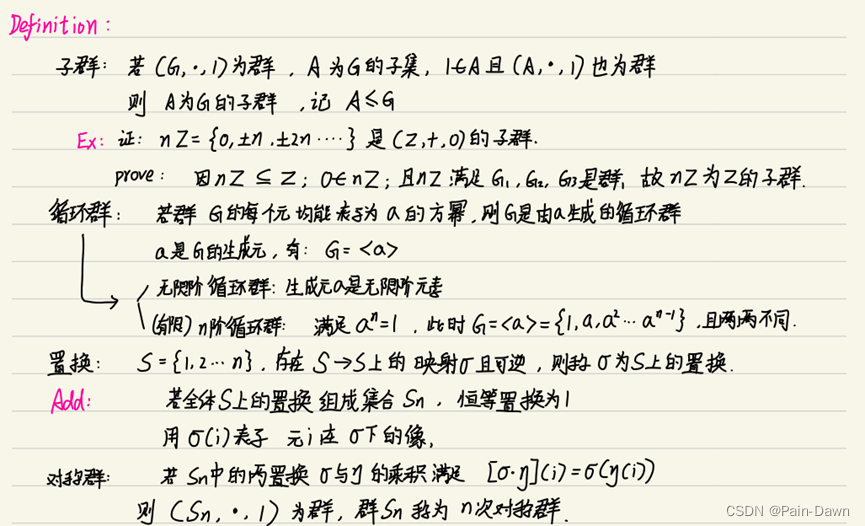 Definition:
子群: 若 (G, ·, 1)为群 , A 为G的子集, 1∈A 且 (A, ·, 1) 也为群
则 A为G的子群 ,记 A≤G
Ex: 证: nZ = {0, ±n, ±2n ····} 是 (Z,+,0)的子群.
prove: 因nZ ⊆ Z; 0∈nZ; 且nZ 满足 G1, G2, G3是群, 故nZ为Z的子群.
循环群: 若群 G的每个元 均能表示为 a 的方幂, 则G是由a生成的循环群
a是G的生成元, 有: G = <a>
无限阶循环群: 生成元a是无限阶元素
(有限) n阶循环群: 满足 aⁿ=1 , 此时 G=<a>={1,a,a²··· aⁿ⁻¹} ,且两两不同.
置换: S={1,2···n} , 存在 S→S上的 映射σ且可逆 , 则称 σ为S上的置换.
Add: 若全体S上的置换 组成集合 Sn , 恒等置换为1
用 σ(i)表示 元i在 σ下的像,
对称群: 若 Sn中的两置换 σ与η的乘积满足 [σ·η](i)=σ(η(i))
则 (Sn, ·, 1) 为群, 群Sn 称为 n次对称群.
CSDN @Pain-Dawn